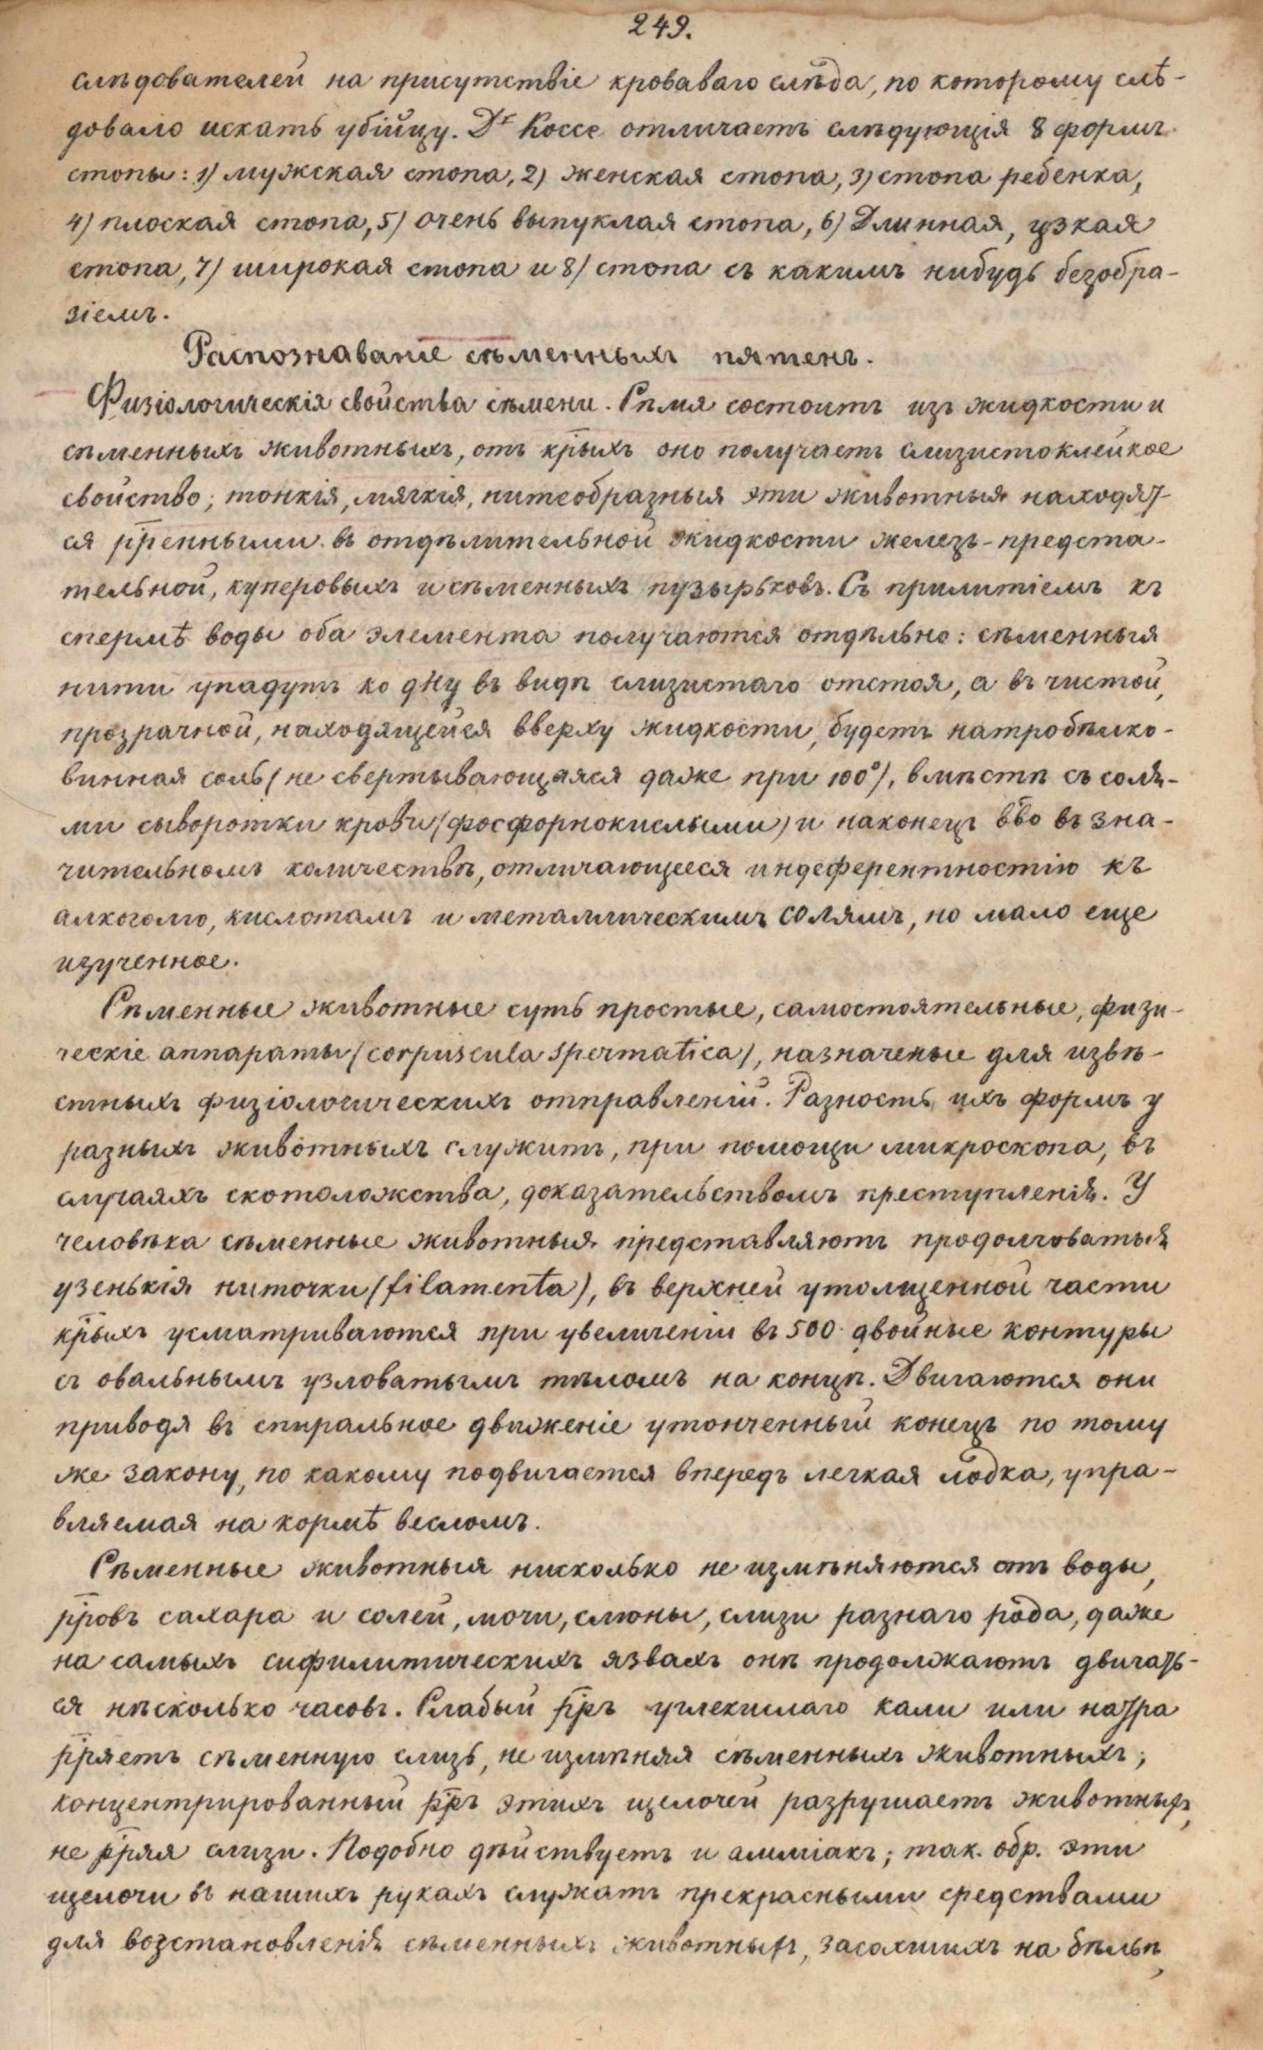 249.
слѣдователей на присутствіе кроваваго слѣда, по которому слѣ-
довало искать убійцу. Dr Коссе отличаетъ слѣдующія 8 формъ
стопы: 1) мужская стопа, 2) женская стопа, 3) стопа ребенка,
4) плоская стопа, 5) очень выпуклая стопа, 6) Длинная, узкая
стопа, 7) широкая стопа и 8) стопа съ какимъ нибудь безобра-
зіемъ.
Распознаваніе сѣменныхъ пятенъ.
Физіологическія свойства сѣмени. Сѣмя состоитъ изъ жидкости и
сѣменныхъ животныхъ, отъ кр̄ыхъ оно получаетъ слизистоклейкое
свойство; тонкія, мягкія, нитеобразныя эти животныя находят-
ся р̄ренными въ отдѣлительной жидкости железъ-предста-
тельной, куперовыхъ и сѣменныхъ пузырьковъ. Съ прилитіемъ къ
спермѣ воды оба элемента получаются отдѣльно: сѣменныя
нити упадутъ ко дну въ видѣ слизистаго отстоя, а въ чистой,
прозрачной, находящейся вверху жидкости, будетъ натробѣлко-
винная соль (не свертывающаяся даже при 100°), вмѣстѣ съ соля-
ми сыворотки крови (фосфорнокислыми) и наконецъ в̄во въ зна-
чительномъ количествѣ, отличающееся индеферентностію къ
алкоголю, кислотамъ и металлическимъ солямъ, но мало еще
изученное.
Сѣменные животные суть простые, самостоятельные, физи-
ческіе аппараты (corpuscula spermatica), назначеные для извѣ-
стныхъ физіологическихъ отправленій. Разность ихъ формъ у
разныхъ животныхъ служитъ, при помощи микроскопа, въ
случаяхъ скотоложства, доказательствомъ преступленія. У
человѣка сѣменные животныя представляютъ продолговатыя
узенькія ниточки (filamenta), въ верхней утолщенной части
кр̄ыхъ усматриваются при увеличеніи въ 500 двойные контуры
съ овальнымъ узловатымъ тѣломъ на концѣ. Двигаются они
приводя въ спиральное движеніе утонченный конецъ по тому
же закону, по какому подвигается впередъ легкая лодка, упра-
вляемая на кормѣ весломъ.
Сѣменные животныя нисколько не измѣняются отъ воды,
р̄ровъ сахара и солей, мочи, слюны, слизи разнаго рода, даже
на самыхъ сифилитическихъ язвахъ онѣ продолжаютъ двигать-
ся нѣсколько часовъ. Слабый р̄ръ углекислаго кали или натра
р̄ряетъ сѣменную слизь, не измѣняя сѣменныхъ животныхъ;
концентрированный р̄ръ этихъ щелочей разрушаетъ животныхъ,
не р̄ряя слизи. Подобно дѣйствуетъ и амміакъ; так. обр. эти
щелочи въ нашихъ рукахъ служатъ прекрасными средствами
для возстановленія сѣменныхъ животныхъ, засохшихъ на бѣльѣ,